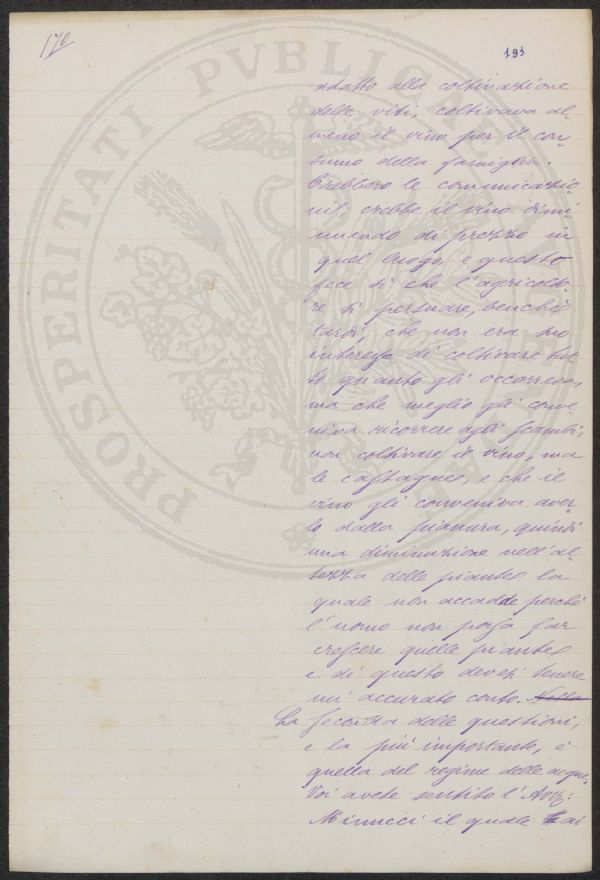 170
193
adatto alla coltivazione
delle viti, coltivava al-
meno il vino per il con-
sumo della famiglia.
Crebbero le comunicazio-
ni, crebbe il vino dimi-
nuendo di prezzo in
quel luogo, e questo
fece sì che l'agricolto-
re si persuase, benchè
tardi, che non era suo
interesse di coltivare tut-
to quanto gli occorreva,
ma che meglio gli conve-
niva ricorrere agli scambi,
non coltivare il vino, ma
le castagne, e che il
vino gli conveniva aver-
lo dalla pianura, quindi
una diminuzione nell'al-
tezza delle piante la
quale non accadde perchè
l'uomo non possa far
crescere quelle piante
e di questo devesi tenere
un accurato conto. Nella
La seconda delle questioni,
e la più importante, è
quella del regime delle acque.
Voi avete sentito l'Avv:
Minucci il quale ai
PROSPERITATI PVBLICAE